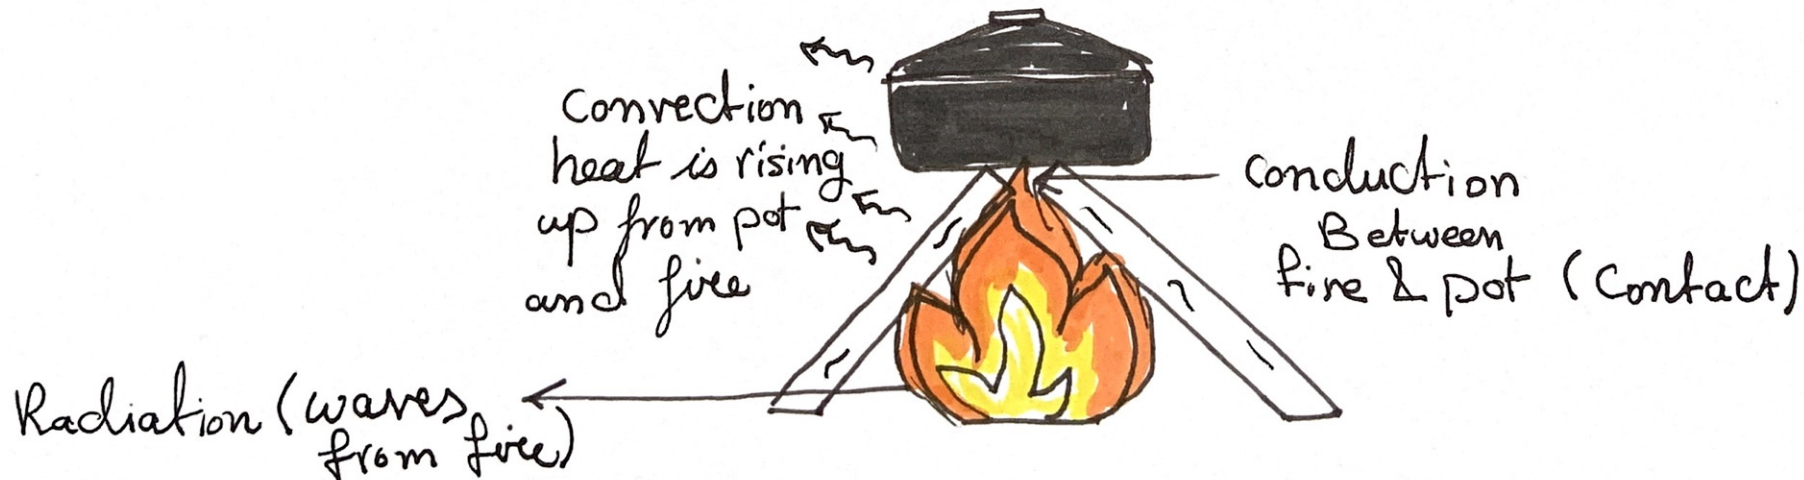 Convection
heat is rising
up from pot
and fire
Conduction
Between
fire & pot (Contact)
Radiation (waves
from fire)